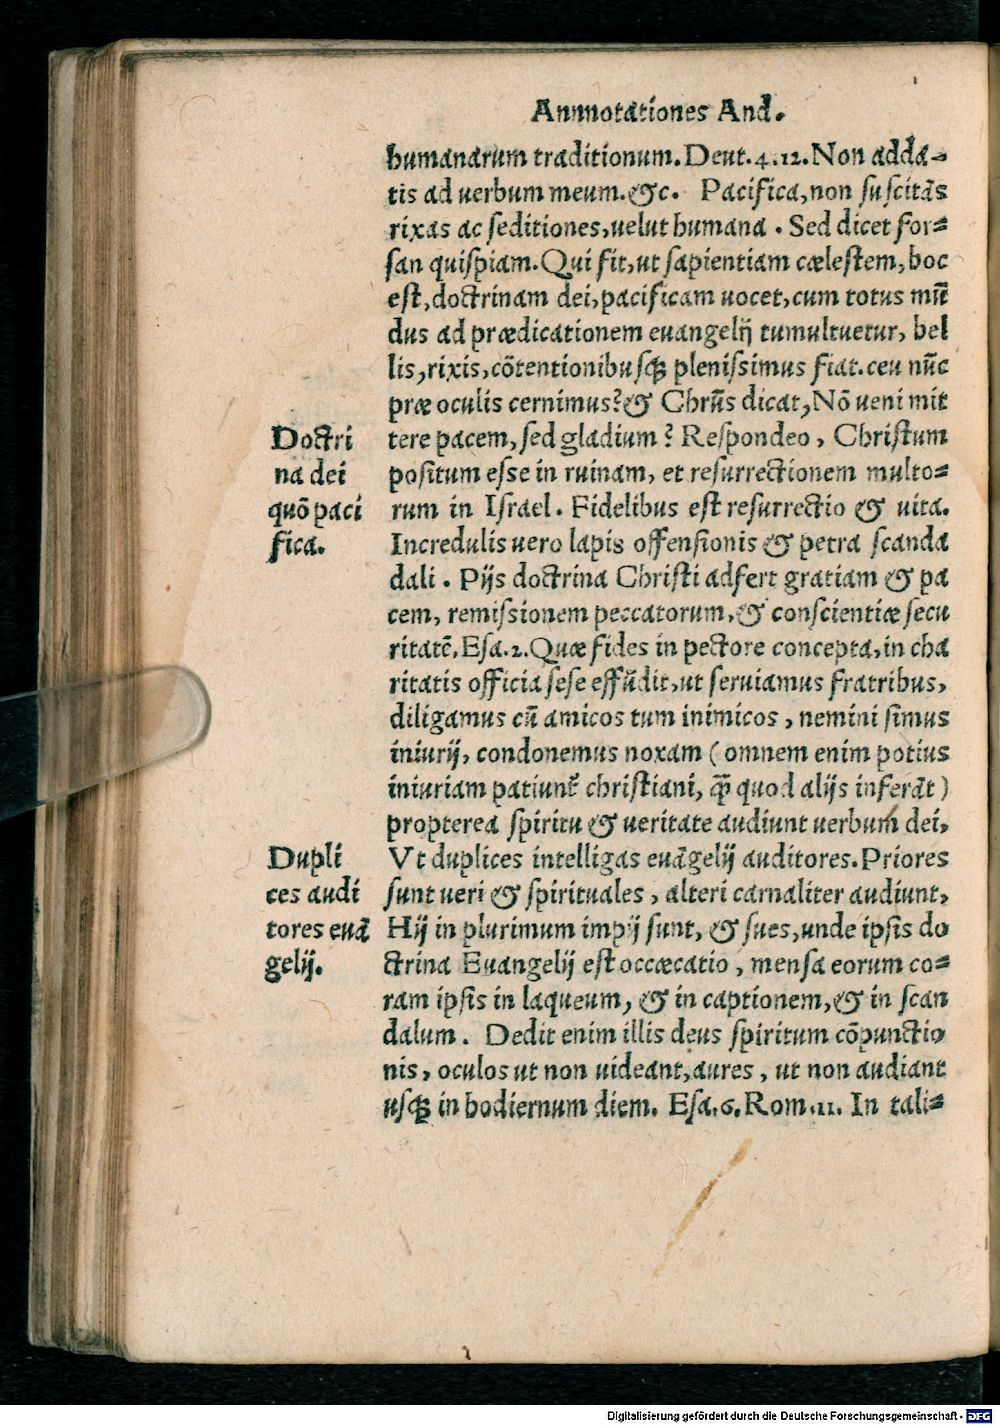 Annnotationes And.
humanarum traditionum. Deut. 4. 12. Non adda-
tis ad uerbum meum. &c. Pacifica, non suscitās
rixas ac seditiones, uelut humana. Sed dicet for=
san quispiam. Qui fit, ut sapientiam cælestem, hoc
est, doctrinam dei, pacificam uocet, cum totus mū
dus ad prædicationem euangelij tumultuetur, bel
lis, rixis, cōtentionibusq; plenissimus fiat. ceu nūc
præ oculis cernimus? & Chrūs dicat, Nō ueni mit
tere pacem, sed gladium? Respondeo, Christum
positum esse in ruinam, et resurrectionem multo=
rum in Israel. Fidelibus est resurrectio & uita.
Incredulis uero lapis offensionis & petra scanda
dali. Pijs doctrina Christi adfert gratiam & pa
cem, remissionem peccatorum, & conscientiæ secu
ritatē, Esa. 2. Quæ fides in pectore concepta, in cha
ritatis officia sese effūdit, ut seruiamus fratribus,
diligamus cū amicos tum inimicos, nemini simus
iniurij, condonemus noxam (omnem enim potius
iniuriam patiunt̃ christiani, q̃ quod alijs inferāt)
propterea spiritu & ueritate audiunt uerbum dei,
Vt duplices intelligas euāgelij auditores. Priores
sunt ueri & spirituales, alteri carnaliter audiunt,
Hij in plurimum impij sunt, & sues, unde ipsis do
ctrina Euangelij est occæcatio, mensa eorum co=
ram ipsis in laqueum, & in captionem, & in scan
dalum. Dedit enim illis deus spiritum cōpunctio
nis, oculos ut non uideant, aures, ut non audiant
usq; in hodiernum diem. Esa. 6. Rom. 11. In tali=
Doctri
na dei
quō paci
fica.
Dupli
ces audi
tores euā
gelij.
Digitalisierung gefördert durch die Deutsche Forschungsgemeinschaft - DFG